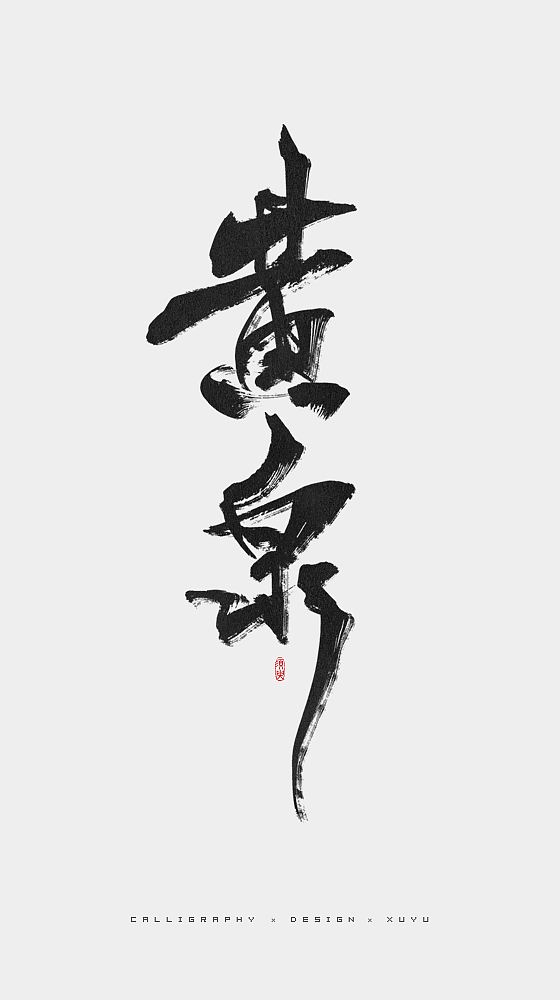 黄泉
CALLIGRAPHY × DESIGN × XUYU